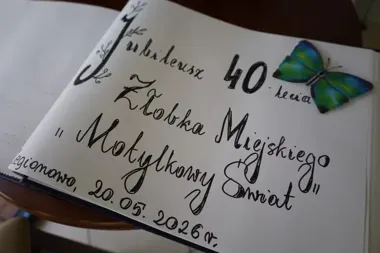 Jubileusz 40-lecia
Żłobka Miejskiego
"Motylkowy Świat"
Legionowo, 20.05.2026 r.